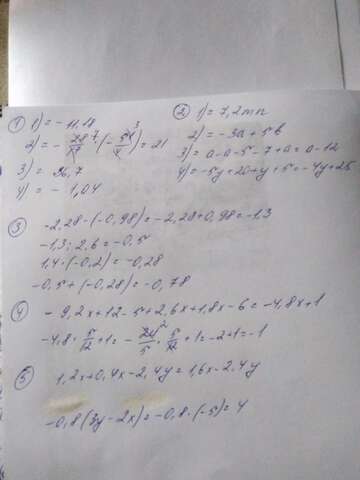 ① 1) = - 11,18
2) = - 28/17 · (- 51/4) = 21
3) = 36,7
4) = - 1,04
② 1) = 7,2mn
2) = -3a + 5b
3) = a-a-5-7+a = a-12
4) = -5y+20+y+5 = -4y+25
③ -2,28-(-0,98) = -2,28+0,98 = -1,3
-1,3 : 2,6 = -0,5
1,4 · (-0,2) = -0,28
-0,5 + (-0,28) = -0,78
④ - 9,2x+12-5+2,6x+1,8x-6 = -4,8x+1
-4,8 · 5/12 + 1 = - 24/5 · 5/12 + 1 = -2+1 = -1
⑤ 1,2x+0,4x-2,4y = 1,6x-2,4y
-0,8(3y-2x) = -0,8 · (-5) = 4